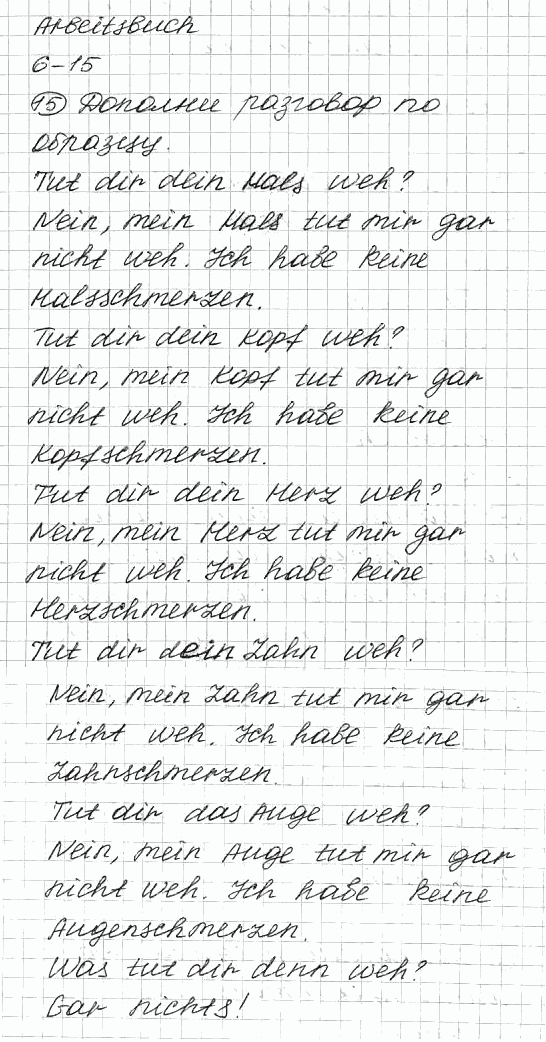 Arbeitsbuch
6-15
15 Дополни разговор по
образцу.
Tut dir dein Hals weh?
Nein, mein Hals tut mir gar
nicht weh. Ich habe keine
Halsschmerzen.
Tut dir dein Kopf weh?
Nein, mein Kopf tut mir gar
nicht weh. Ich habe keine
Kopfschmerzen.
Tut dir dein Herz weh?
Nein, mein Herz tut mir gar
nicht weh. Ich habe keine
Herzschmerzen.
Tut dir dein Zahn weh?
Nein, mein Zahn tut mir gar
nicht weh. Ich habe keine
Zahnschmerzen.
Tut dir das Auge weh?
Nein, mein Auge tut mir gar
nicht weh. Ich habe keine
Augenschmerzen.
Was tut dir denn weh?
Gar nichts!